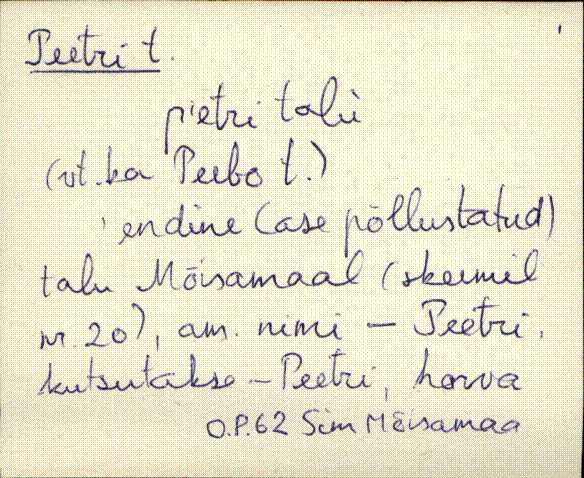 Peetri t.
pietri talù
(vt. ka Peebo t.)
endine (ase põllustatud)
talu Mõisamaal (skeemil
nr. 20), am. nimi – Peetri,
kutsutakse – Peetri, harva
O.P.62 Sim Mõisamaa